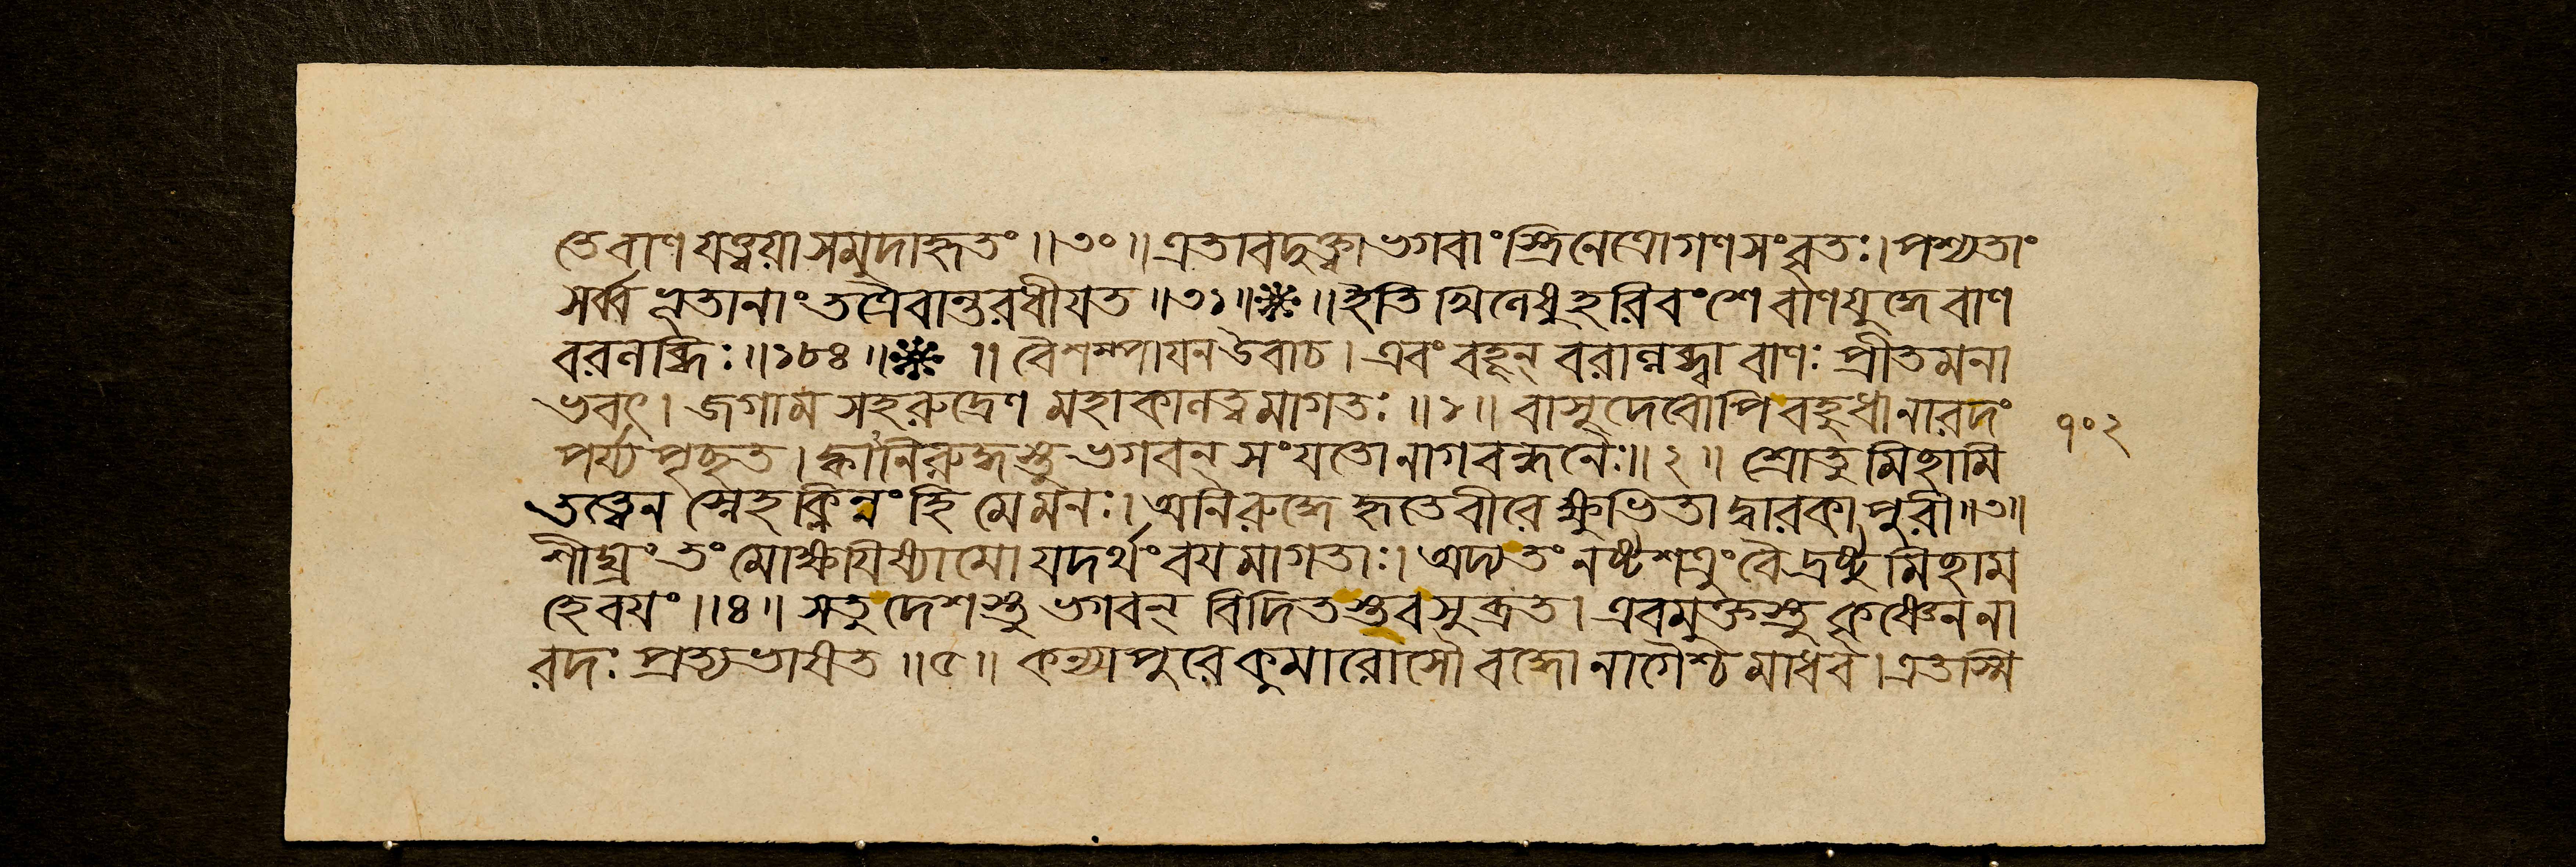 তে বাণ যত্ত্বয়া সমুদাহৃতং ॥৩০॥ এতাবদুক্ত্বা ভগবাংস্ত্রিনেত্রো গণসংবৃতঃ। পশ্যতাং
সর্ব্বভূতানাং তত্রৈবান্তরধীযত ॥৩১॥❋॥ ইতি খিলেষু হরিবংশে বাণযুদ্ধে বাণ
বরলব্ধিঃ ॥১৮৪॥❋ ॥ বৈশম্পাযন উবাচ। এবং বহূন্ বরাল্লব্ধ্বা বাণঃ প্রীতমনা
ভবৎ। জগাম সহ রুদ্রেণ মহাকালত্বমাগতঃ ॥১॥ বাসুদেবোপি বহুধা নারদং
পর্য্যপৃচ্ছত। ক্বানিরুদ্ধস্তু ভগবন্ সংযতো নাগবন্ধনৈঃ॥২॥ শ্রোতুমিচ্ছামি
তত্ত্বেন স্নেহক্লিন্নং হি মে মনঃ। অনিরুদ্ধে হৃতে বীরে ক্ষুভিতা দ্বারকা পুরী॥৩॥
শীঘ্রং তং মোক্ষযিষ্যামো যদর্থং বয়মাগতাঃ। অদ্য তং নষ্টশত্রুং বৈ দ্রষ্টুমিচ্ছাম
হে বয়ং ॥৪॥ স তু দেশস্তু ভগবন্ বিদিতস্তব সুব্রত। এবমুক্তস্তু কৃষ্ণেন না
রদঃ প্রত্যভাষত ॥৫॥ কন্যাপুরে কুমারোসৌ বদ্ধো নাগৈশ্চ মাধব। এতস্মি
১০২